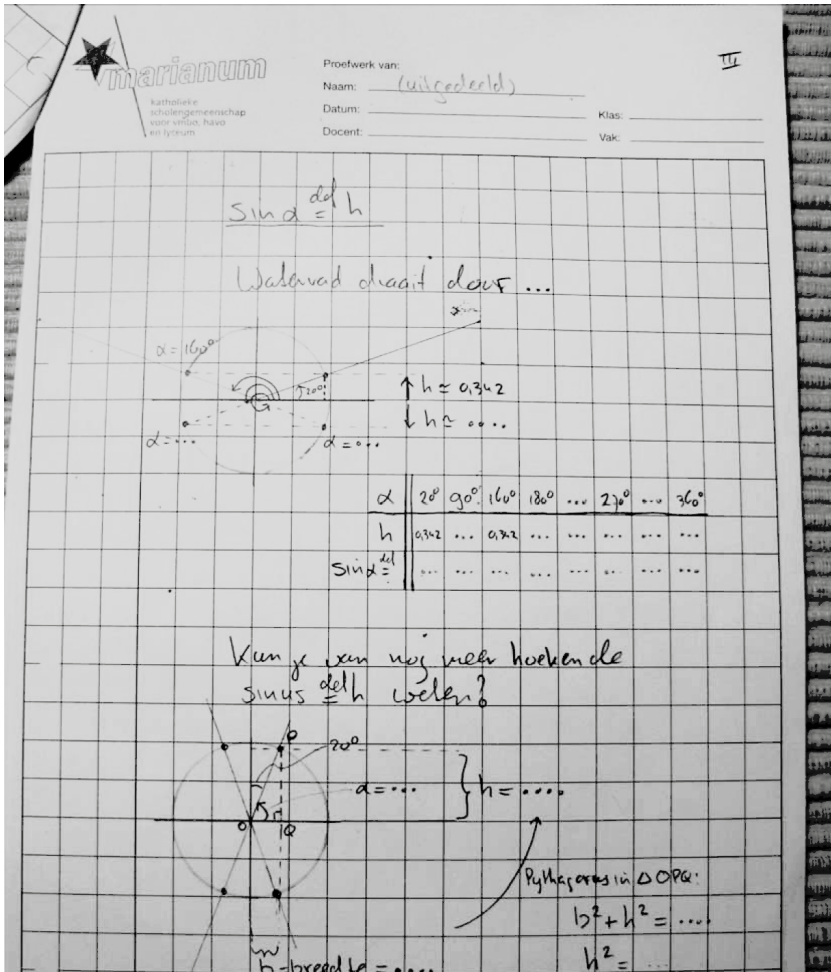 marianum
katholieke
scholengemeenschap
voor vmbo, havo
en lyceum
Proefwerk van:
Naam: (uitgedeeld)
Datum:
Docent:
Klas:
Vak:
III
sin α def = h
Waterrad draait door ...
α = 160°
20°
α = ...
α = ...
↑ h ≃ 0,342
↓ h ≃ ....
α 20° 90° 160° 180° ... 270° ... 360°
h 0,342 ... 0,342 ... ... ... ... ...
sin α def = ... ... ... ... ... ... ... ...
Kun je van nog meer hoeken de
sinus def = h weten?
P
20°
α = ...
h = ....
O
Q
Pythagoras in △ OPQ:
b² + h² = ....
h² = ....
b = breedte = ....